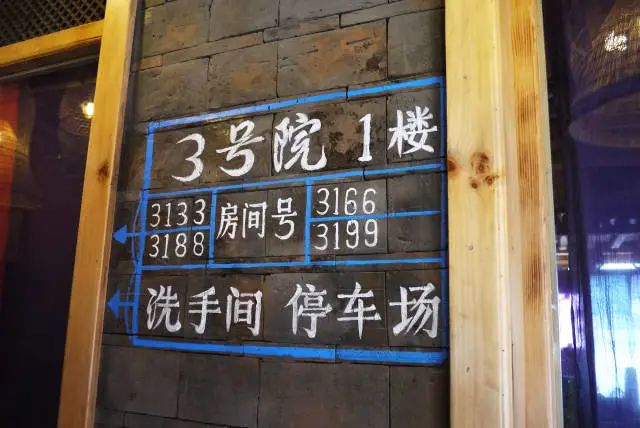 3号院 1楼
3133 房间号 3166
3188 3199
洗手间 停车场